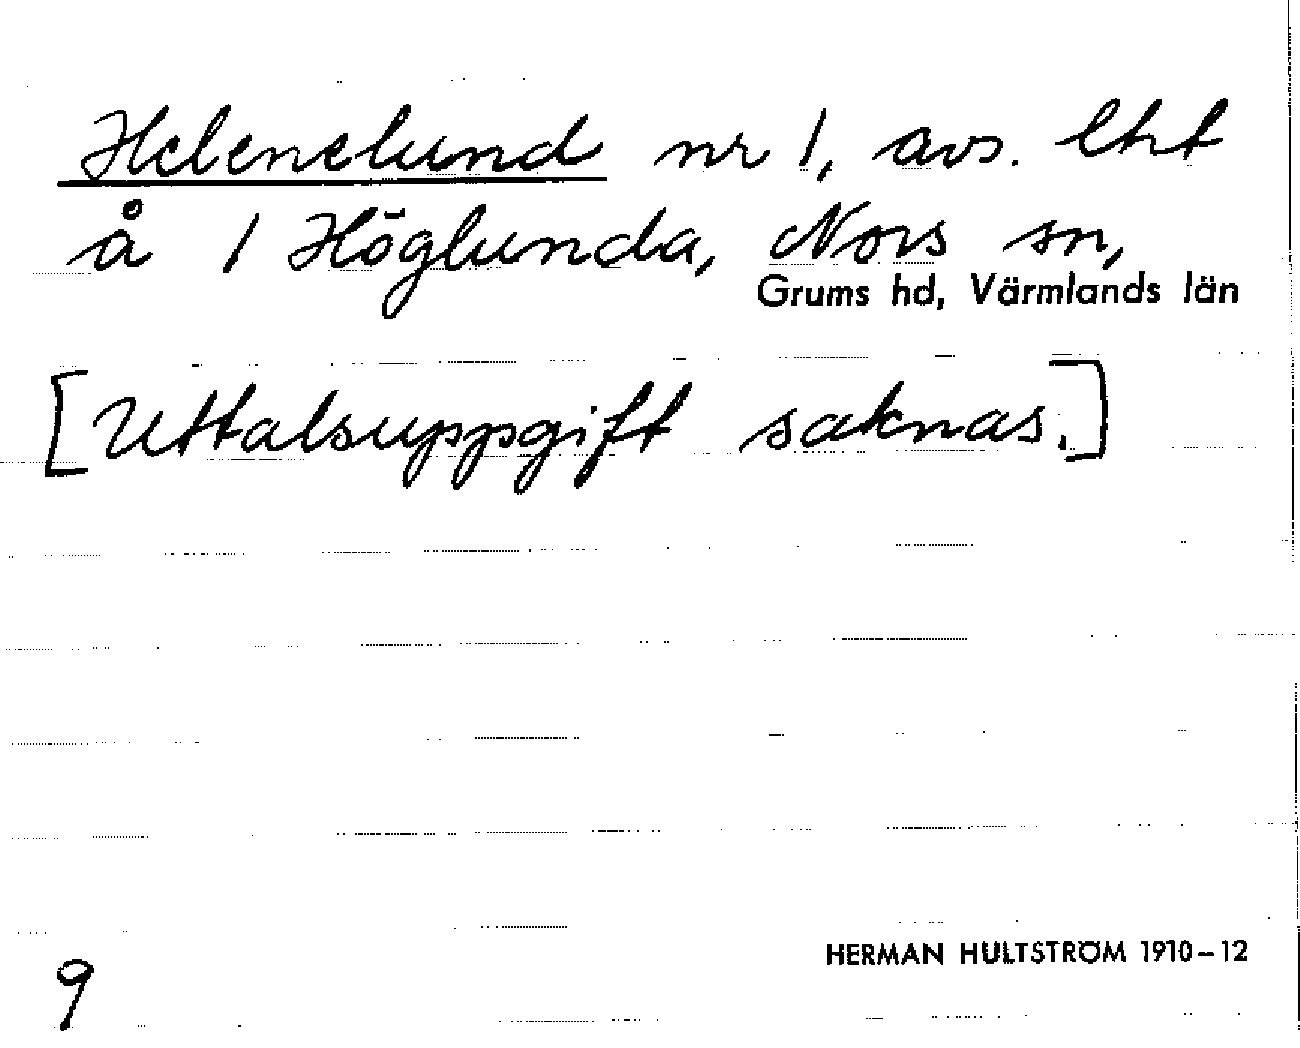 Helenelund nr 1, avs. lht
å 1 Höglunda, Nors sn,
Grums hd, Värmlands län
[Uttalsuppgift saknas.]
HERMAN HULTSTRÖM 1910–12
9